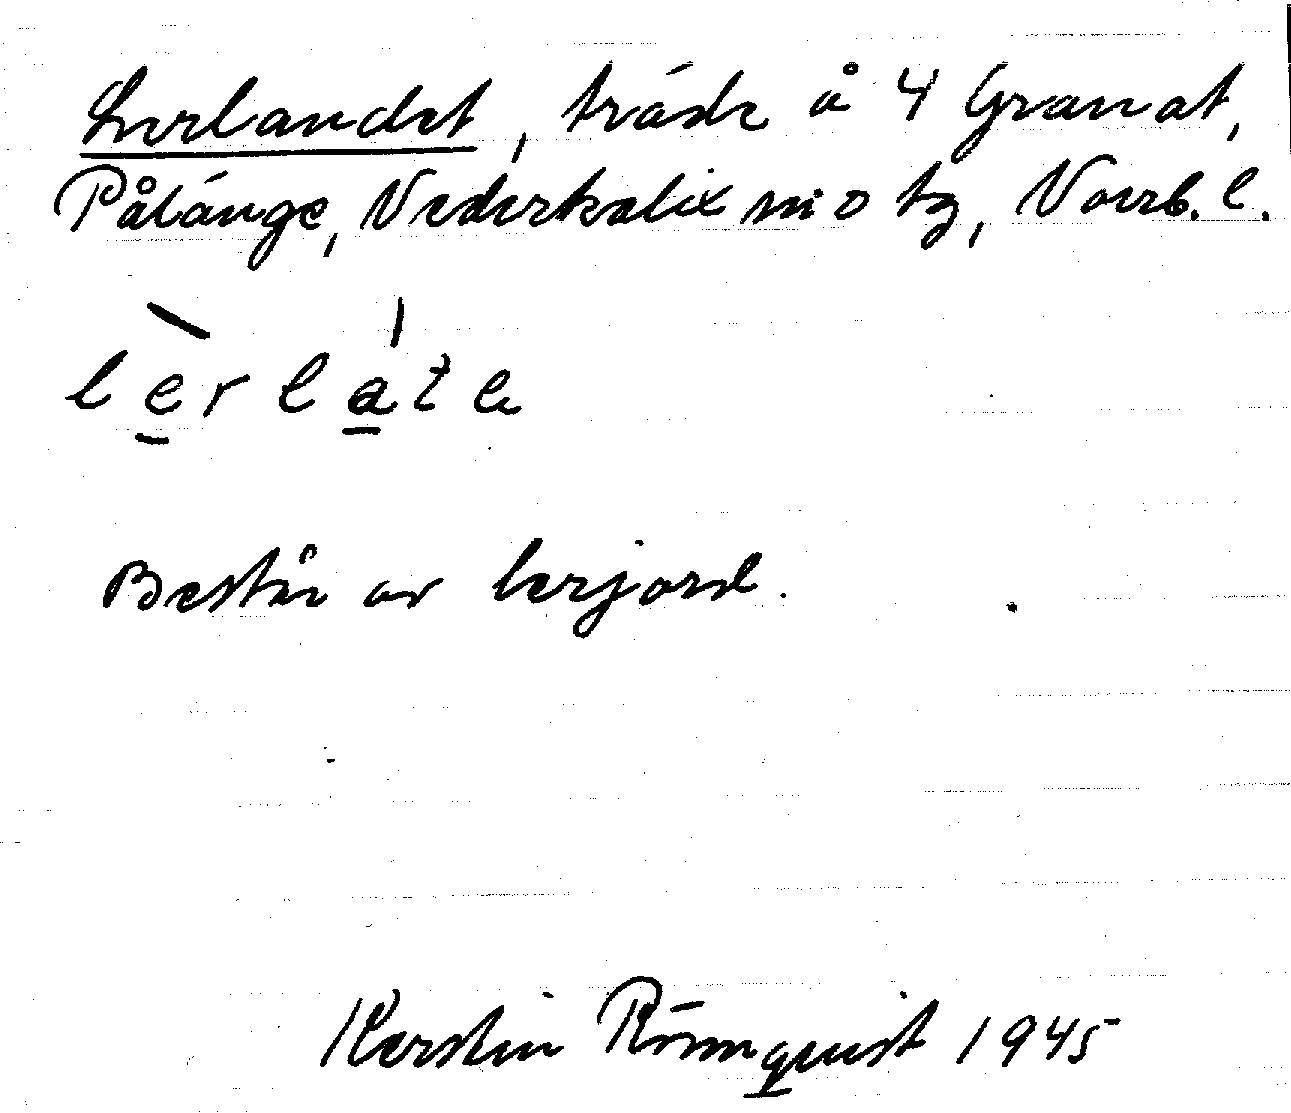 Lerlandet, träde å 4 Granat,
Pålänge, Nederkalix sn o tg, Norrb. l.
lèrlate
Består av lerjord.
Kerstin Rönnquist 1945